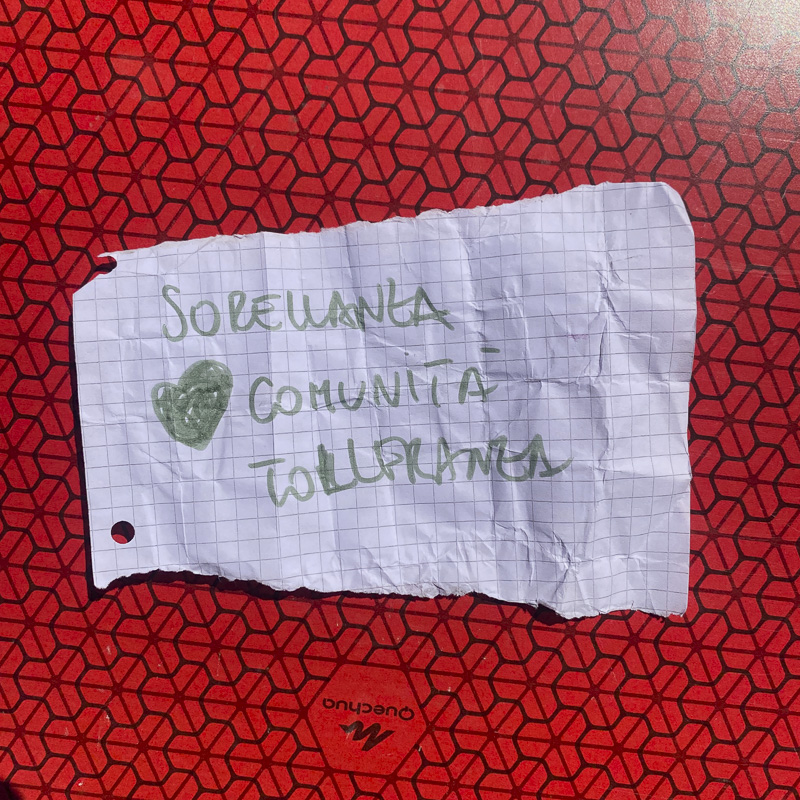 SORELLANZA
COMUNITÀ
TOLLERANZA
Quechua